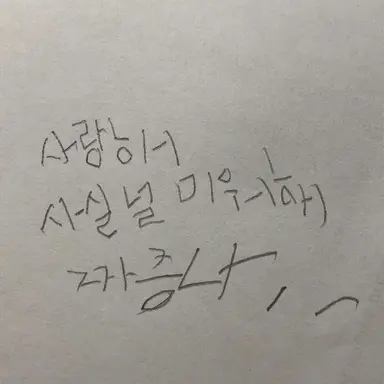 사랑해
사실 널 미워해
짜증나, ~